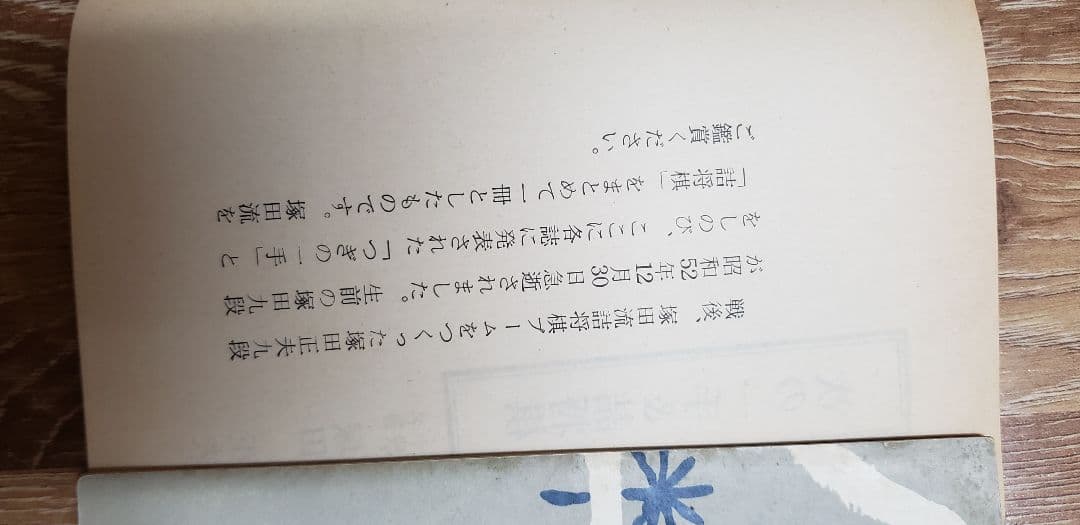 戦後、塚田流詰将棋ブームをつくった塚田正夫九段
が昭和52年12月30日急逝されました。生前の塚田九段
をしのび、ここに各誌に発表された「つぎの一手」と
「詰将棋」をまとめて一冊としたものです。塚田流を
ご鑑賞ください。